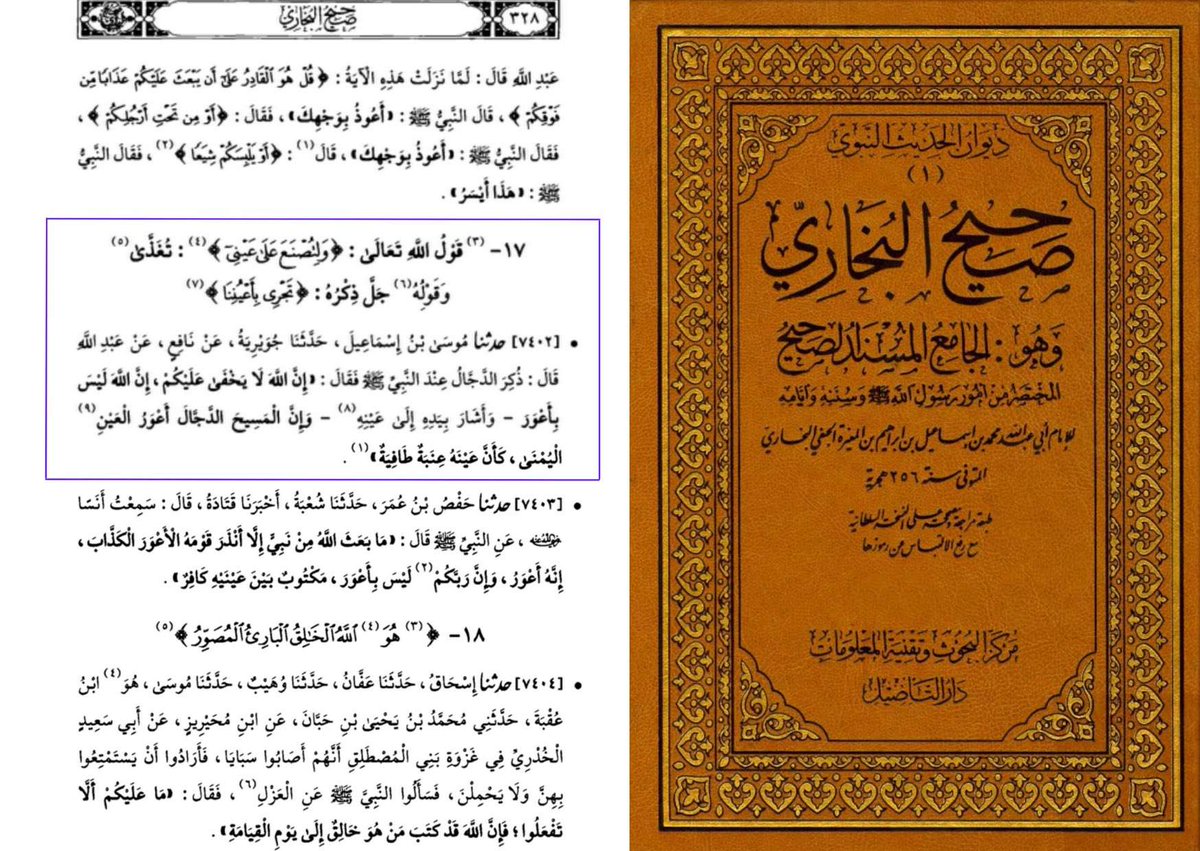 صحيح البخاري
٣٢٨
عَبْدِ اللَّهِ قَالَ : لَمَّا نَزَلَتْ هَذِهِ الْآيَةُ : ﴿ قُلْ هُوَ الْقَادِرُ عَلَىٰ أَن يَبْعَثَ عَلَيْكُمْ عَذَابًا مِّن
فَوْقِكُمْ ﴾ ، قَالَ النَّبِيُّ ﷺ : «أَعُوذُ بِوَجْهِكَ» ، فَقَالَ : ﴿أَوْ مِن تَحْتِ أَرْجُلِكُمْ ﴾ ،
فَقَالَ النَّبِيُّ ﷺ : «أَعُوذُ بِوَجْهِكَ» ، قَالَ(١) : ﴿أَوْ يَلْبِسَكُمْ شِيَعًا ﴾(٢) ، فَقَالَ النَّبِيُّ
ﷺ : «هَذَا أَيْسَرُ» .
١٧- (٣) قَوْلُ اللَّهِ تَعَالَى : ﴿وَلِتُصْنَعَ عَلَىٰ عَيْنِي ﴾(٤) : تُغَذَّى(٥)
وَقَوْلُهُ(٦) جَلَّ ذِكْرُهُ : ﴿ تَجْرِي بِأَعْيُنِنَا ﴾(٧)
• [٧٤٠٢] حدثنا مُوسَى بْنُ إِسْمَاعِيلَ ، حَدَّثَنَا جُوَيْرِيَةُ ، عَنْ نَافِعٍ ، عَنْ عَبْدِ اللَّهِ
قَالَ : ذُكِرَ الدَّجَّالُ عِنْدَ النَّبِيِّ ﷺ فَقَالَ : «إِنَّ اللَّهَ لَا يَخْفَى عَلَيْكُمْ ، إِنَّ اللَّهَ لَيْسَ
بِأَعْوَرَ - وَأَشَارَ بِيَدِهِ إِلَى عَيْنِهِ(٨) - وَإِنَّ الْمَسِيحَ الدَّجَّالَ أَعْوَرُ الْعَيْنِ(٩)
الْيُمْنَى ، كَأَنَّ عَيْنَهُ عِنَبَةٌ طَافِيَةٌ»(١) .
• [٧٤٠٣] حدثنا حَفْصُ بْنُ عُمَرَ ، حَدَّثَنَا شُعْبَةُ ، أَخْبَرَنَا قَتَادَةُ ، قَالَ : سَمِعْتُ أَنَسًا
، عَنِ النَّبِيِّ ﷺ قَالَ : «مَا بَعَثَ اللَّهُ مِنْ نَبِيٍّ إِلَّا أَنْذَرَ قَوْمَهُ الْأَعْوَرَ الْكَذَّابَ ،
إِنَّهُ أَعْوَرُ ، وَإِنَّ رَبَّكُمْ(٢) لَيْسَ بِأَعْوَرَ ، مَكْتُوبٌ بَيْنَ عَيْنَيْهِ كَافِرٌ» .
١٨- ﴿(٣) هُوَ(٤) اللَّهُ الْخَالِقُ الْبَارِئُ الْمُصَوِّرُ ﴾(٥)
• [٧٤٠٤] حدثنا إِسْحَاقُ ، حَدَّثَنَا عَفَّانُ ، حَدَّثَنَا وُهَيْبٌ ، حَدَّثَنَا مُوسَى ، هُوَ(٤) ابْنُ
عُقْبَةَ ، حَدَّثَنِي مُحَمَّدُ بْنُ يَحْيَى بْنِ حَبَّانَ ، عَنِ ابْنِ مُحَيْرِيزٍ ، عَنْ أَبِي سَعِيدٍ
الْخُدْرِيِّ فِي غَزْوَةِ بَنِي الْمُصْطَلِقِ أَنَّهُمْ أَصَابُوا سَبَايَا ، فَأَرَادُوا أَنْ يَسْتَمْتِعُوا
بِهِنَّ وَلَا يَحْمِلْنَ ، فَسَأَلُوا النَّبِيَّ ﷺ عَنِ الْعَزْلِ(٦) ، فَقَالَ : «مَا عَلَيْكُمْ أَلَّا
تَفْعَلُوا ؛ فَإِنَّ اللَّهَ قَدْ كَتَبَ مَنْ هُوَ خَالِقٌ إِلَى يَوْمِ الْقِيَامَةِ» .
ديوان الحديث النبوي
(١)
صَحِيحُ البُخَارِيّ
وَهُوَ : الجَامِعُ المُسْنَدُ الصَّحِيحُ
المختصر من أمور رسول الله ﷺ وسننه وأيامه
للإمام أبي عبد الله محمد بن إسماعيل بن إبراهيم بن المغيرة الجعفي البخاري
المتوفى سنة ٢٥٦ هجرية
طبعة مراجعة ومصححة على النسخة السلطانية
مع رفع الالتباس عن رموزها
مركز البحوث وتقنية المعلومات
دار التأصيل